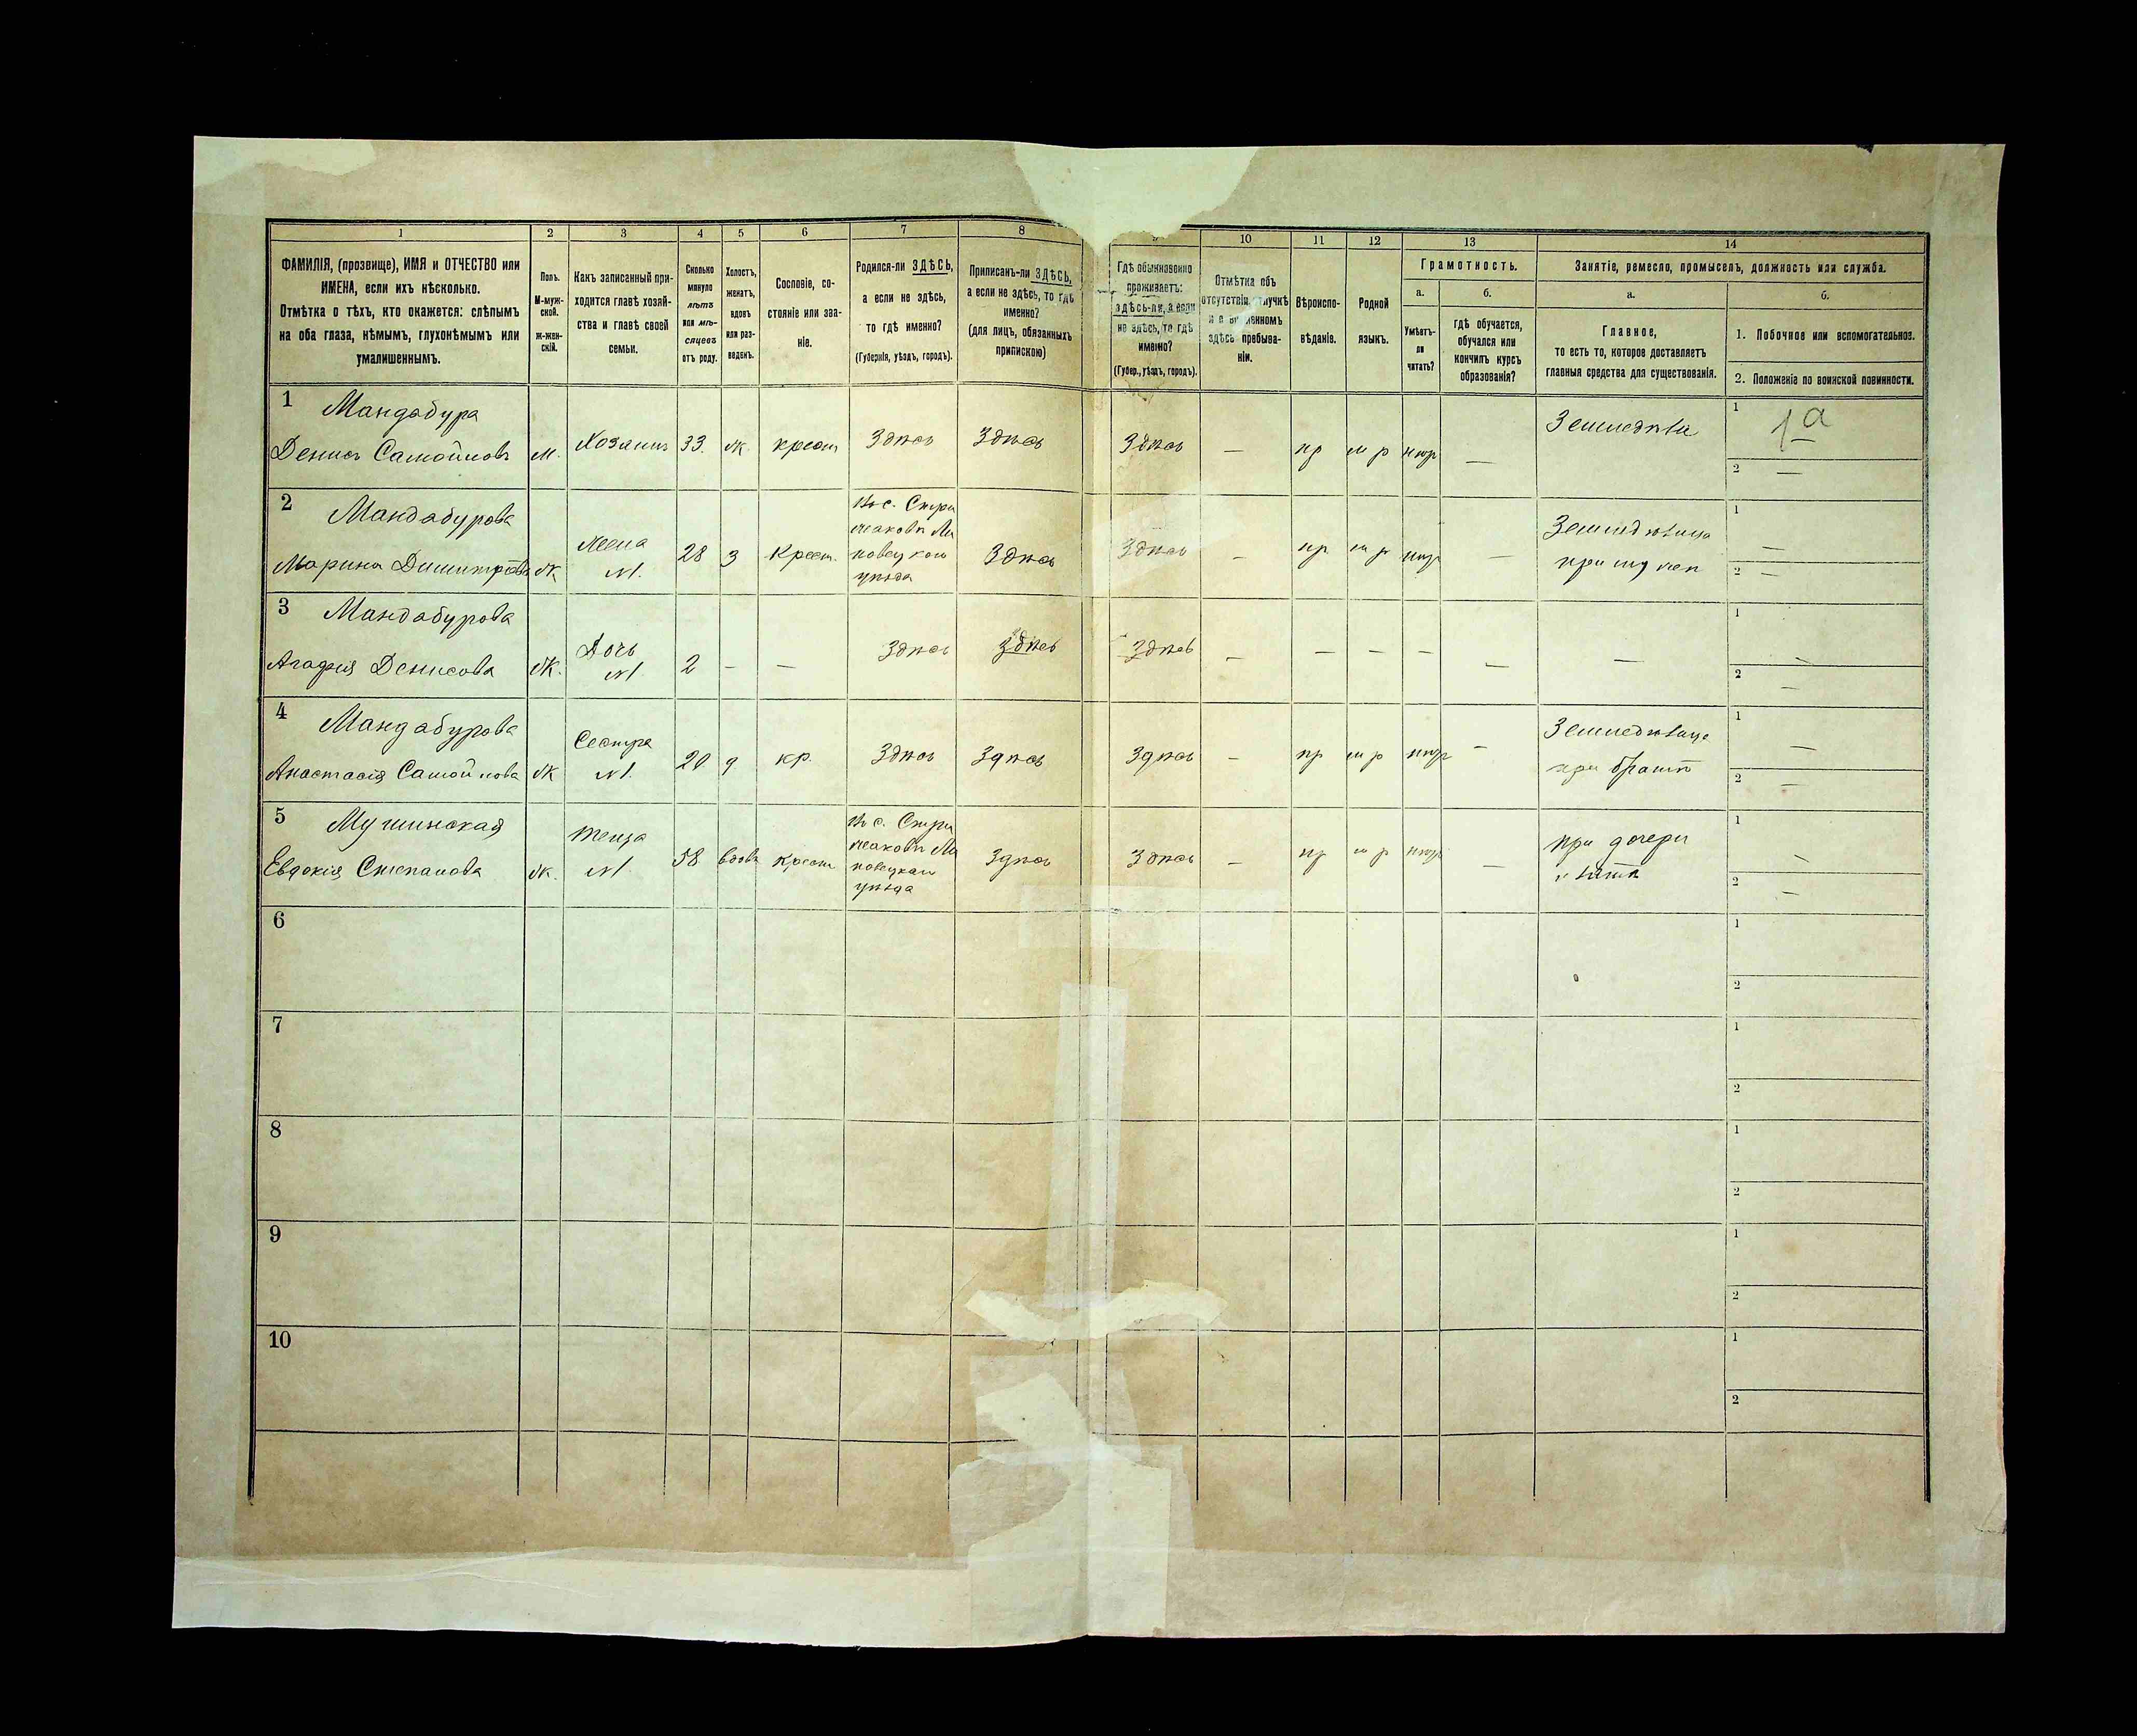 1 2 3 4 5 6 7 8 10 11 12 13 14
ФАМИЛІЯ, (прозвище), ИМЯ и ОТЧЕСТВО или
ИМЕНА, если ихъ нѣсколько.
Отмѣтка о тѣхъ, кто окажется: слѣпымъ
на оба глаза, нѣмымъ, глухонѣмымъ или
умалишеннымъ.
Полъ.
М-муж-
ской.
ж-жен-
скій.
Какъ записанный при-
ходится главѣ хозяй-
ства и главѣ своей
семьи.
Сколько
минуло
лѣтъ
или мѣ-
сяцевъ
отъ роду.
Холостъ,
женатъ,
вдовъ
или раз-
веденъ.
Сословіе, со-
стояніе или зва-
ніе.
Родился-ли ЗДѢСЬ,
а если не здѣсь,
то гдѣ именно?
(Губернія, уѣздъ, городъ).
Приписанъ-ли ЗДѢСЬ,
а если не здѣсь, то гдѣ
именно?
(для лицъ, обязанныхъ
припискою)
Гдѣ обыкновенно
проживаетъ:
здѣсь-ли, а если
не здѣсь, то гдѣ
именно?
(Губер., уѣздъ, городъ).
Отмѣтка объ
отсутствіи, отлучкѣ
и о временномъ
здѣсь пребыва-
ніи.
Вѣроиспо-
вѣданіе.
Родной
языкъ.
Грамотность.
а.
Умѣетъ-
ли
читать?
б.
Гдѣ обучается,
обучался или
кончилъ курсъ
образованія?
Занятіе, ремесло, промыселъ, должность или служба.
а.
Главное,
то есть то, которое доставляетъ
главныя средства для существованія.
б.
1. Побочное или вспомогательное.
2. Положеніе по воинской повинности.
1 Мандабура
Денисъ Самойловъ М. Хозяинъ 33. ж. крест Здѣсь Здѣсь Здѣсь — пр м р —
1 1а
2 —
2 Мандабурова
Марина Димитрова ж Жена М. 28 з Крест. Здѣсь Здѣсь — пр м р —
Въ с. Стри
жаковѣ Ли
повецкого
уѣзда
при мужѣ
1 —
2 —
3 Мандабурова
Агафія Денисова Ж. Дочь М. 2 — — Здѣсь Здѣсь Здѣсь — — — — — —
1 —
2 —
4 Мандабурова
Анастасія Самойлова Ж Сестра М. 20 д кр. Здѣсь Здѣсь Здѣсь — пр м р —
при братѣ
1 —
2 —
5 Мушинская
Евдокія Степанова Ж. теща М. 58 вдова Крест Здѣсь Здѣсь — пр м р —
Въ с. Стри
жаковѣ Ли
повецкаго
уѣзда
при дочери
1 —
2 —
6
1
2
7
1
2
8
1
2
9
1
2
10
1
2